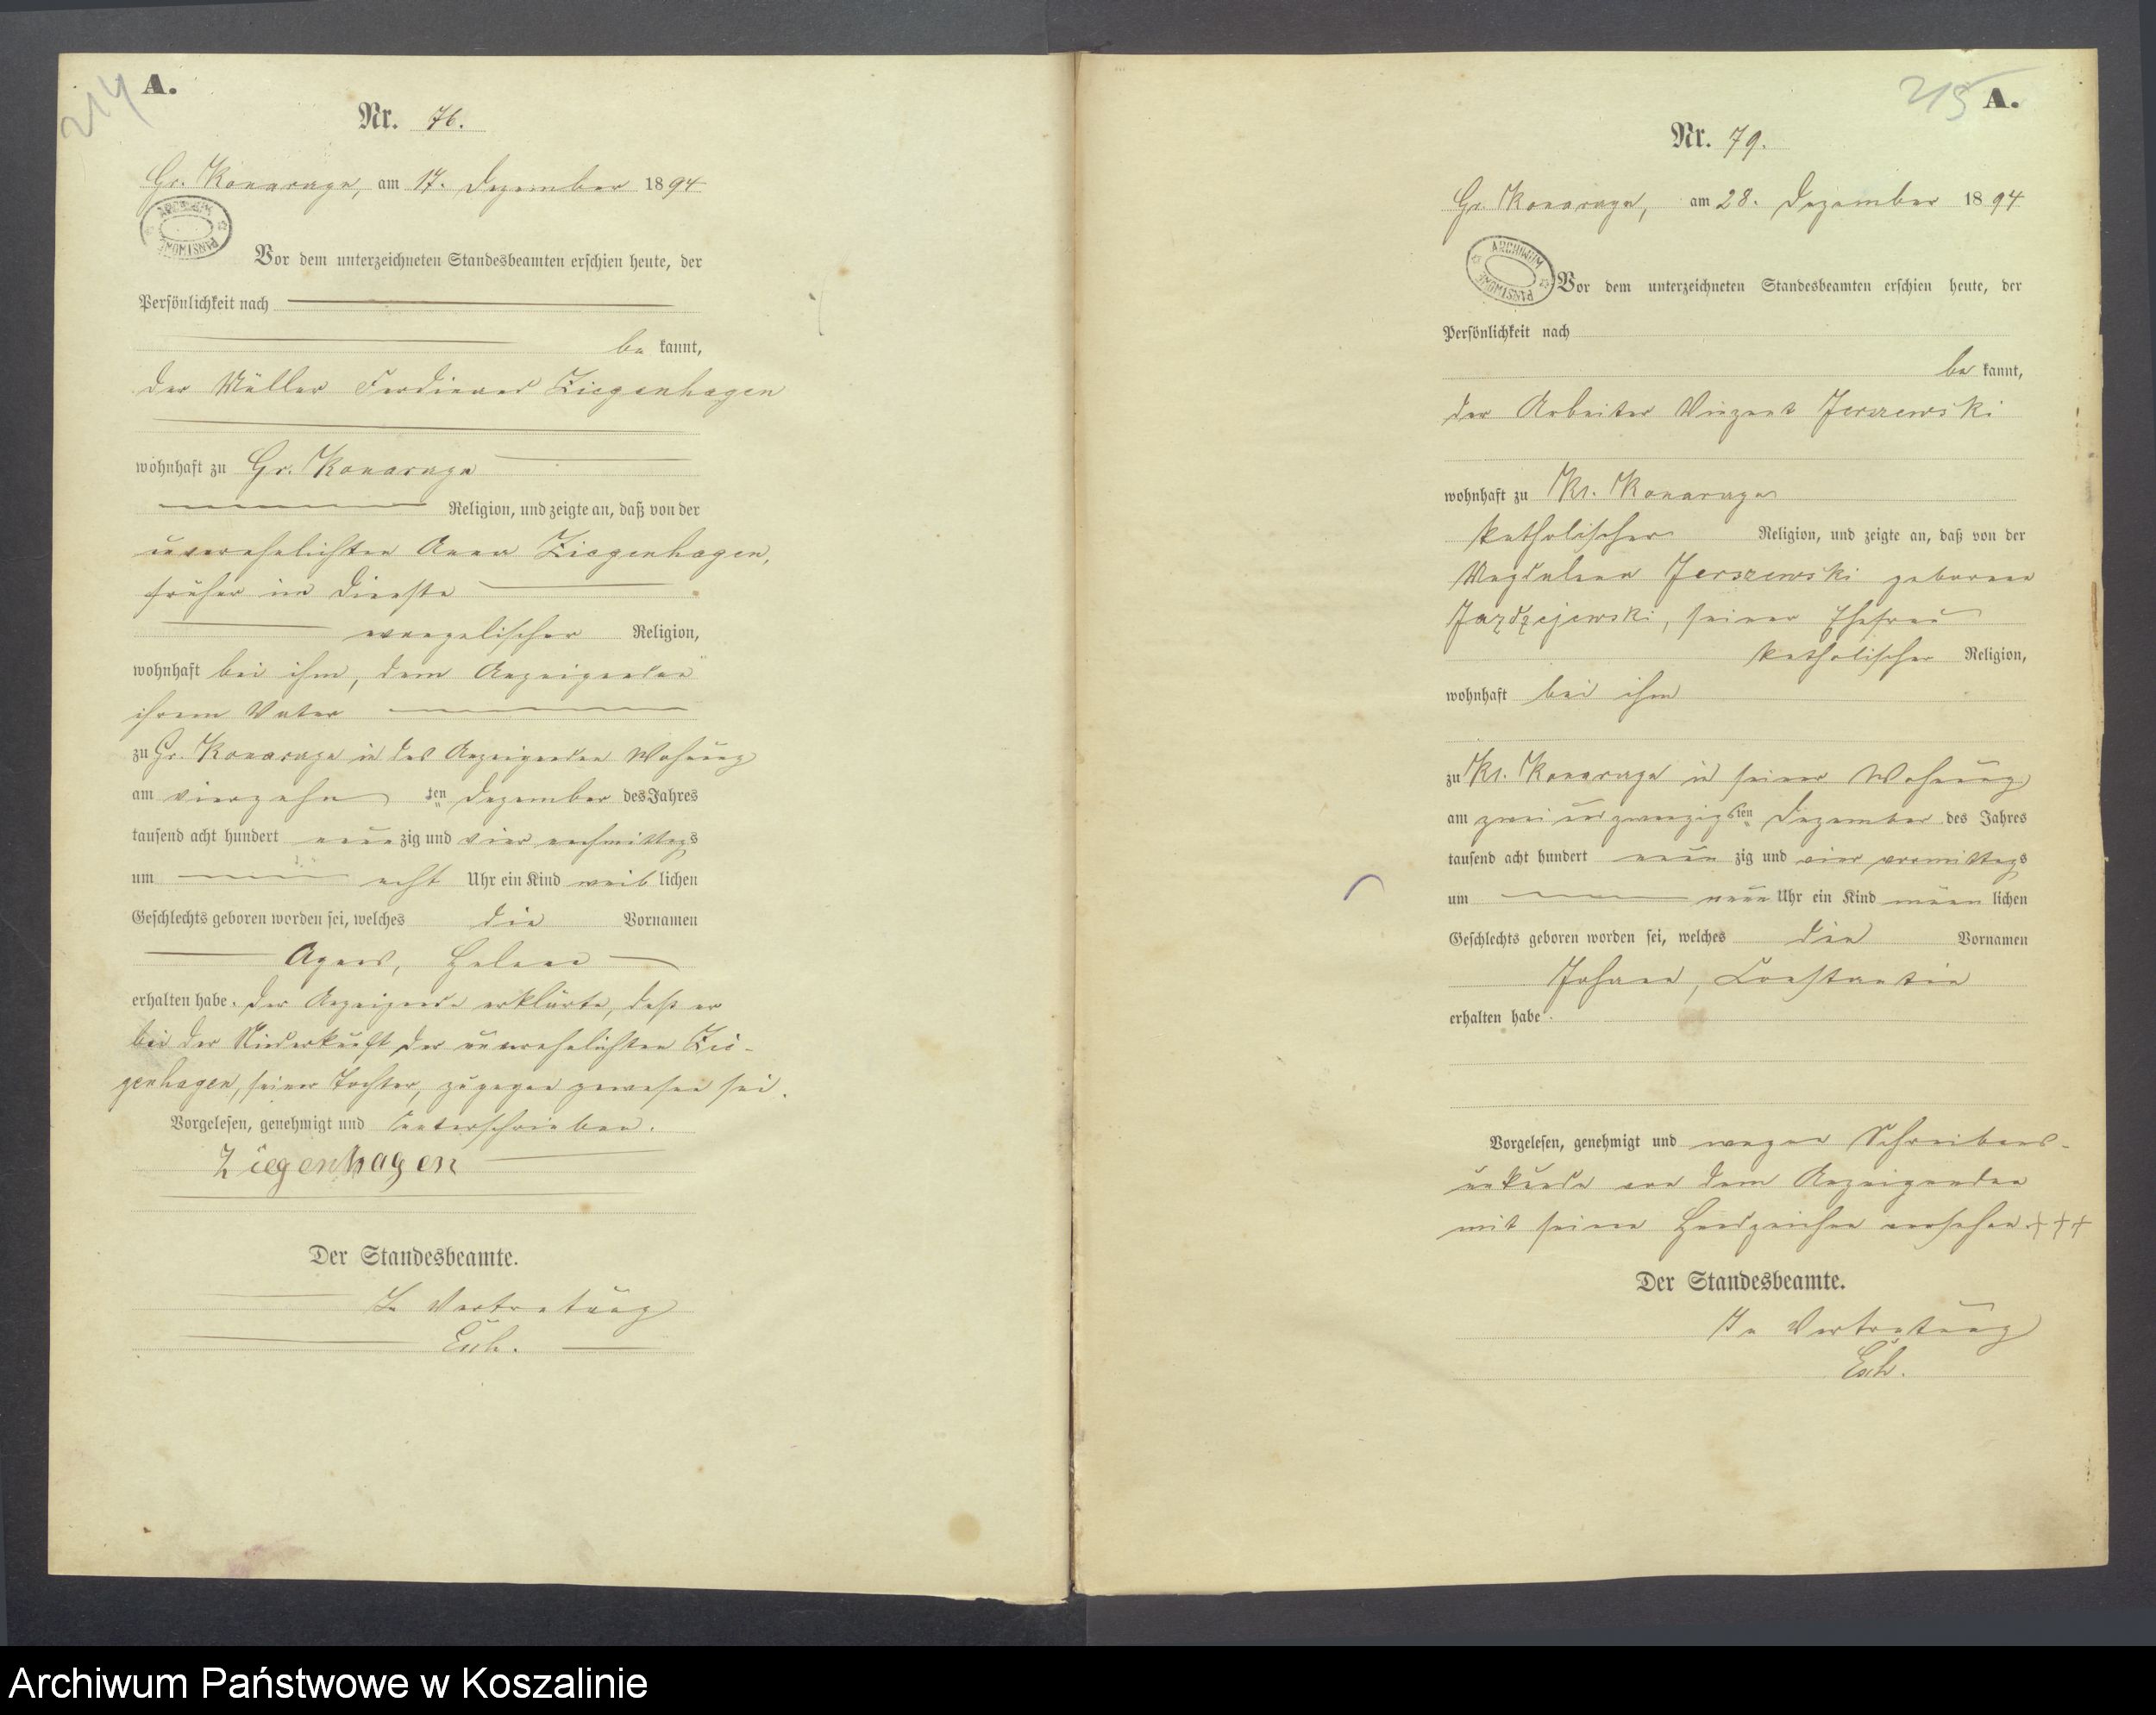 214
A.
Nr. 76.
Gr. Konarczyn, am 17. Dezember 1894
ARCHIWUM
PAŃSTWOWE
Vor dem unterzeichneten Standesbeamten erschien heute, der
Persönlichkeit nach
be kannt,
der Müller Ferdinand Ziegenhagen
wohnhaft zu Gr.
Religion, und zeigte an, daß von der
unverehelichten Anna Ziegenhagen,
früher im Dienste
evangelischer Religion,
wohnhaft bei ihm, dem Anzeigenden
ihrem Vater
zu Gr. in des Anzeigenden Wohnung
am vierzehn ten Dezember des Jahres
tausend acht hundert neun zig und vier nachmittags
um acht Uhr ein Kind weib lichen
Geschlechts geboren worden sei, welches die Vornamen
Agnes, Helene
erhalten habe. Der Anzeigende erklärte, daß er
bei der Niederkunft der unverehelichten Zie-
genhagen, seiner Tochter, zugegen gewesen sei.
Vorgelesen, genehmigt und unterschrieben.
Ziegenhagen
Der Standesbeamte.
In Vertretung
Esch.
215
A.
Nr. 79.
Gr. am 28. Dezember 1894
ARCHIWUM
PAŃSTWOWE
Vor dem unterzeichneten Standesbeamten erschien heute, der
Persönlichkeit nach
be kannt,
der Arbeiter Vinzent Jerszewski
wohnhaft zu Kl.
katholischer Religion, und zeigte an, daß von der
Magdalena Jerszewski geborene
Jazdzejewski, seiner Ehefrau
katholischer Religion,
wohnhaft bei ihm
zu Kl. in seiner Wohnung
am zwei und zwanzigsten Dezember des Jahres
tausend acht hundert neun zig und vier vormittags
um neun Uhr ein Kind männ lichen
Geschlechts geboren worden sei, welches die Vornamen
Johann, Constantin
erhalten habe.
Vorgelesen, genehmigt und wegen Schreibens-
unkunde von dem Anzeigenden
mit seinen Handzeichen versehen. +++
Der Standesbeamte.
In Vertretung
Esch.
Archiwum Państwowe w Koszalinie